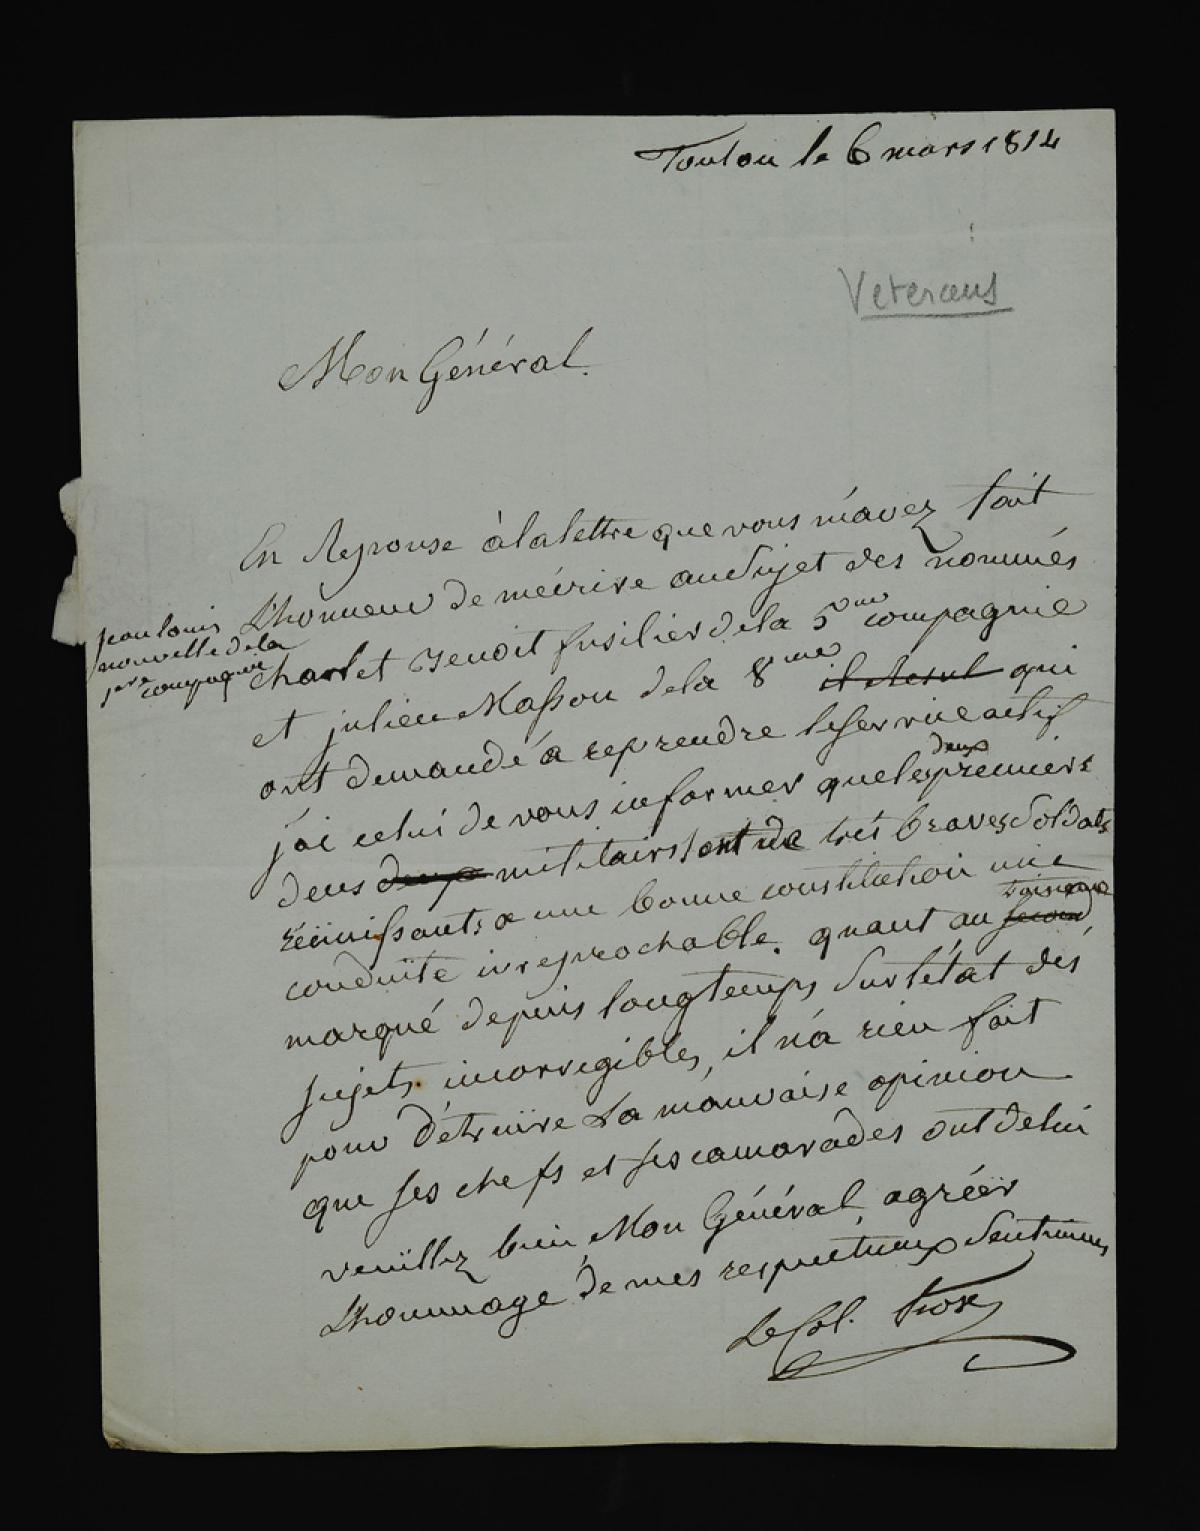 Toulon le 6 mars 1814
Veterans
Mon Général.
En Reponse à la lettre que vous m'avez fait
L'honneur de m'écrire au Sujet des nommés
jean louis
nouvelle de la
1ere compagnie
charlet Benoit fusilier de la 5me compagnie
et julien Masson de la 8me qui
ont demandé à reprendre le service actif
j'ai celui de vous informer que les deux premiers
deux militairs sont de très braves Soldats
réünissants a une bonne constitution une
conduite irreprochable. quant au troisieme
marqué depuis longtemps Sur l'état des
sujets incorrigibles, il n'a rien fait
pour détruire La mauvaise opinion
que ses chefs et ses camarades ont de lui
veuïllez bien, Mon Général, agréér
L'hommage de mes respectueux Sentimens
Le Col.